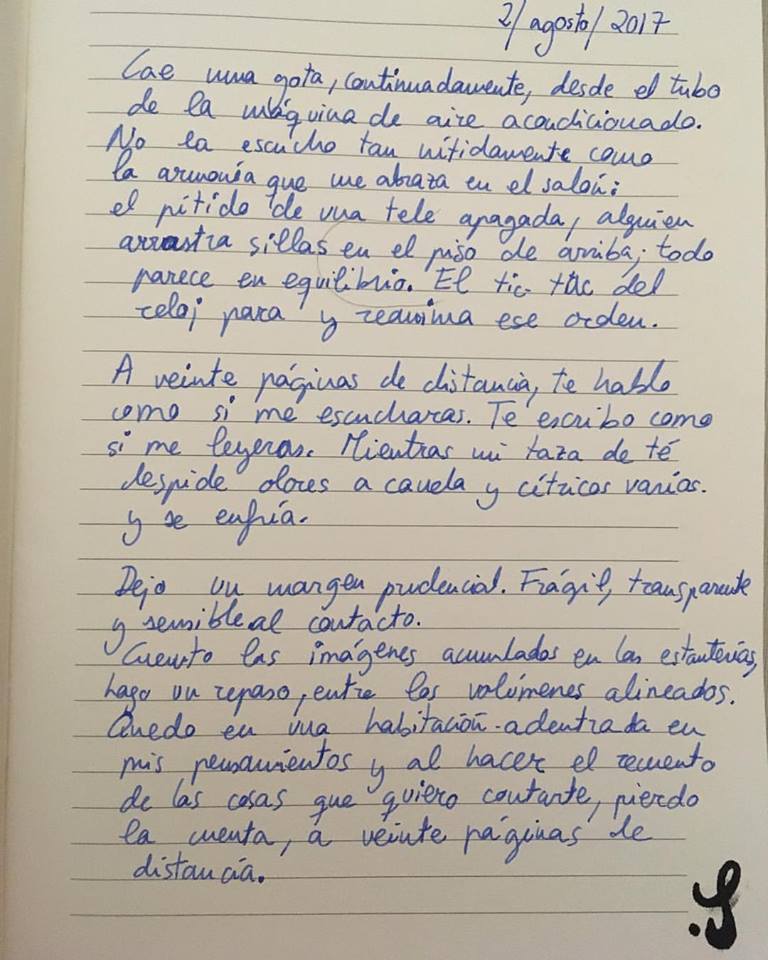 2/agosto/2017
Cae una gota, continuadamente, desde el tubo
de la máquina de aire acondicionado.
No la escucho tan nítidamente como
la armonía que me abraza en el salón:
el pitido de una tele apagada, alguien
arrastra sillas en el piso de arriba; todo
parece en equilibrio. El tic-tac del
reloj para y reanima ese orden.
A veinte páginas de distancia, te hablo
como si me escucharas. Te escribo como
si me leyeras. Mientras mi taza de té
despide olores a canela y cítricos varios.
y se enfría.
Dejo un margen prudencial. Frágil, transparente
y sensible al contacto.
Cuento las imágenes acumulados en las estanterías,
hago un repaso, entre los volúmenes alineados.
Quedo en una habitación adentrada en
mis pensamientos y al hacer el recuento
de las cosas que quiero contarte, pierdo
la cuenta, a veinte páginas de
distancia.